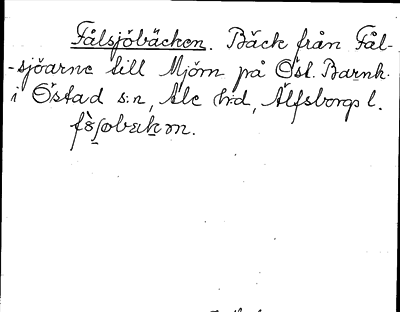 Fålsjöbäcken. Bäck från Fål-
-sjöarne till Mjörn på Öst. Barnk.
i Östad s:n, Ale h:d, Älfsborgs l.